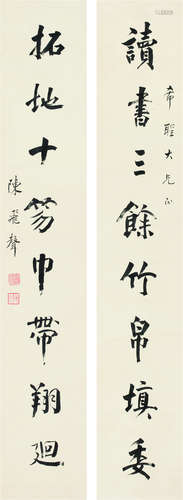 讀書三餘竹帛填委
希聖大兄正
拓地十笏巾帶翔迴
陳蜚聲